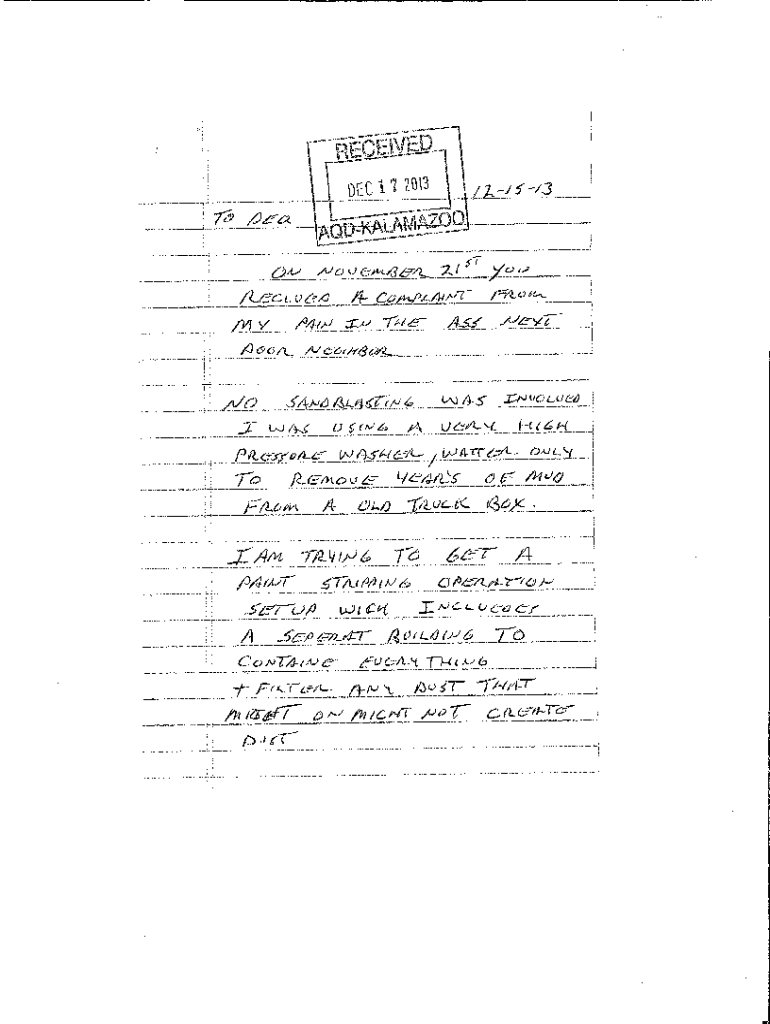 RECEIVED
DEC 17 2013
AQD-KALAMAZOO
12-15-13
TO DEQ
ON NOVEMBER 21ST YOU
RECIVED A COMPLAINT FROM
MY PAIN IN THE ASS NEXT
DOOR NEGIHBOR
NO SANDBLASTING WAS INVOLVED
I WAS USING A VERY HIGH
PRESSORE WASHER, WATTER ONLY
TO REMOVE YEAR'S OF MUD
FROM A OLD TRUCK BOX.
I AM TRYING TO GET A
PAINT STRIPPING OPERATION
SETUP WICH INCLUEDES
A SEPERAT BUILDING TO
CONTAINE EVERYTHING
+ FILTER ANY DUST THAT
MIGHT OR MIGHT NOT CREATE
DIST